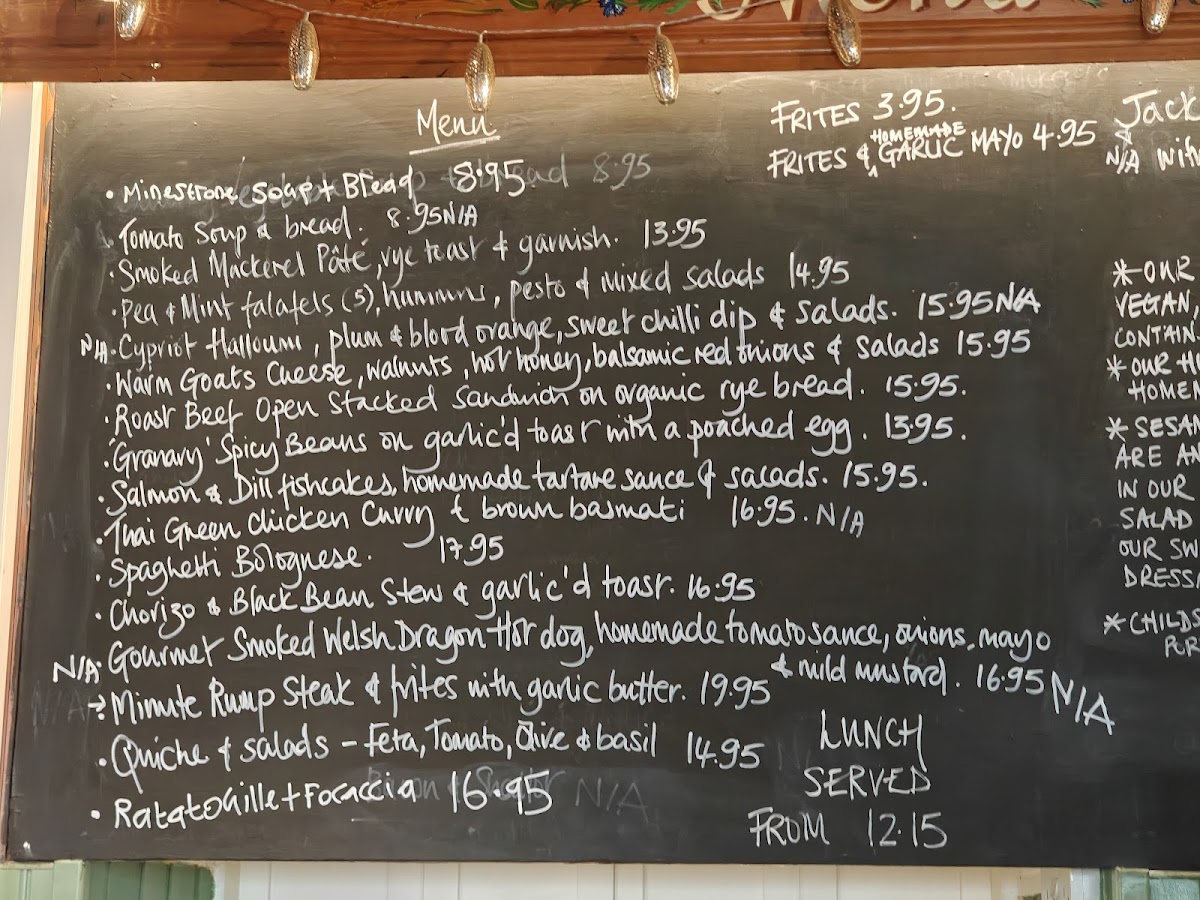 Menu
• Minestrone Soup + Bread 8.95
• Tomato Soup & bread. 8.95 N/A
• Smoked Mackerel Pâté, rye toast & garnish. 13.95
• Pea & Mint falafels (5), hummus, pesto & mixed salads 14.95
N/A • Cypriot Halloumi, plum & blood orange, sweet chilli dip & salads. 15.95 N/A
• Warm Goats Cheese, walnuts, hot honey, balsamic red onions & salads 15.95
• Roast Beef Open Stacked Sandwich on organic rye bread. 15.95.
• 'Granary' Spicy Beans on garlic'd toast with a poached egg. 13.95.
• Salmon & Dill fishcakes, homemade tartare sauce & salads. 15.95.
• Thai Green Chicken Curry & brown basmati 16.95. N/A
• Spaghetti Bolognese. 17.95
• Chorizo & Black Bean Stew & garlic'd toast. 16.95
N/A • Gourmet Smoked Welsh Dragon Hot dog, homemade tomato sauce, onions, mayo
& mild mustard. 16.95 N/A
→ • Minute Rump Steak & frites with garlic butter. 19.95
• Quiche & salads - Feta, Tomato, Olive & basil 14.95
• Ratatouille + Focaccia 16.95
N/A
FRITES 3.95.
FRITES & HOMEMADE GARLIC MAYO 4.95
LUNCH
SERVED
FROM 12.15
Jack
N/A with
* OUR
VEGAN,
CONTAIN
* OUR H
HOMEM
* SESAM
ARE AN
IN OUR
SALAD
OUR SW
DRESS
* CHILDS
POR